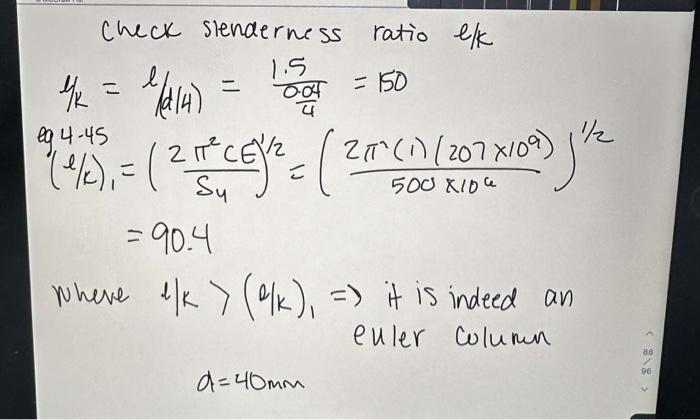 Check slenderness ratio l/k
l/k = l/(d/4) = 1.5/(0.04/4) = 150
eq 4-45
(l/k)₁ = (2π²CE/Sy)^1/2 = (2π²(1)(207x10⁹)/500x10⁶)^1/2
= 90.4
where l/k > (l/k)₁ => it is indeed an
euler column
d=40mm
88
96